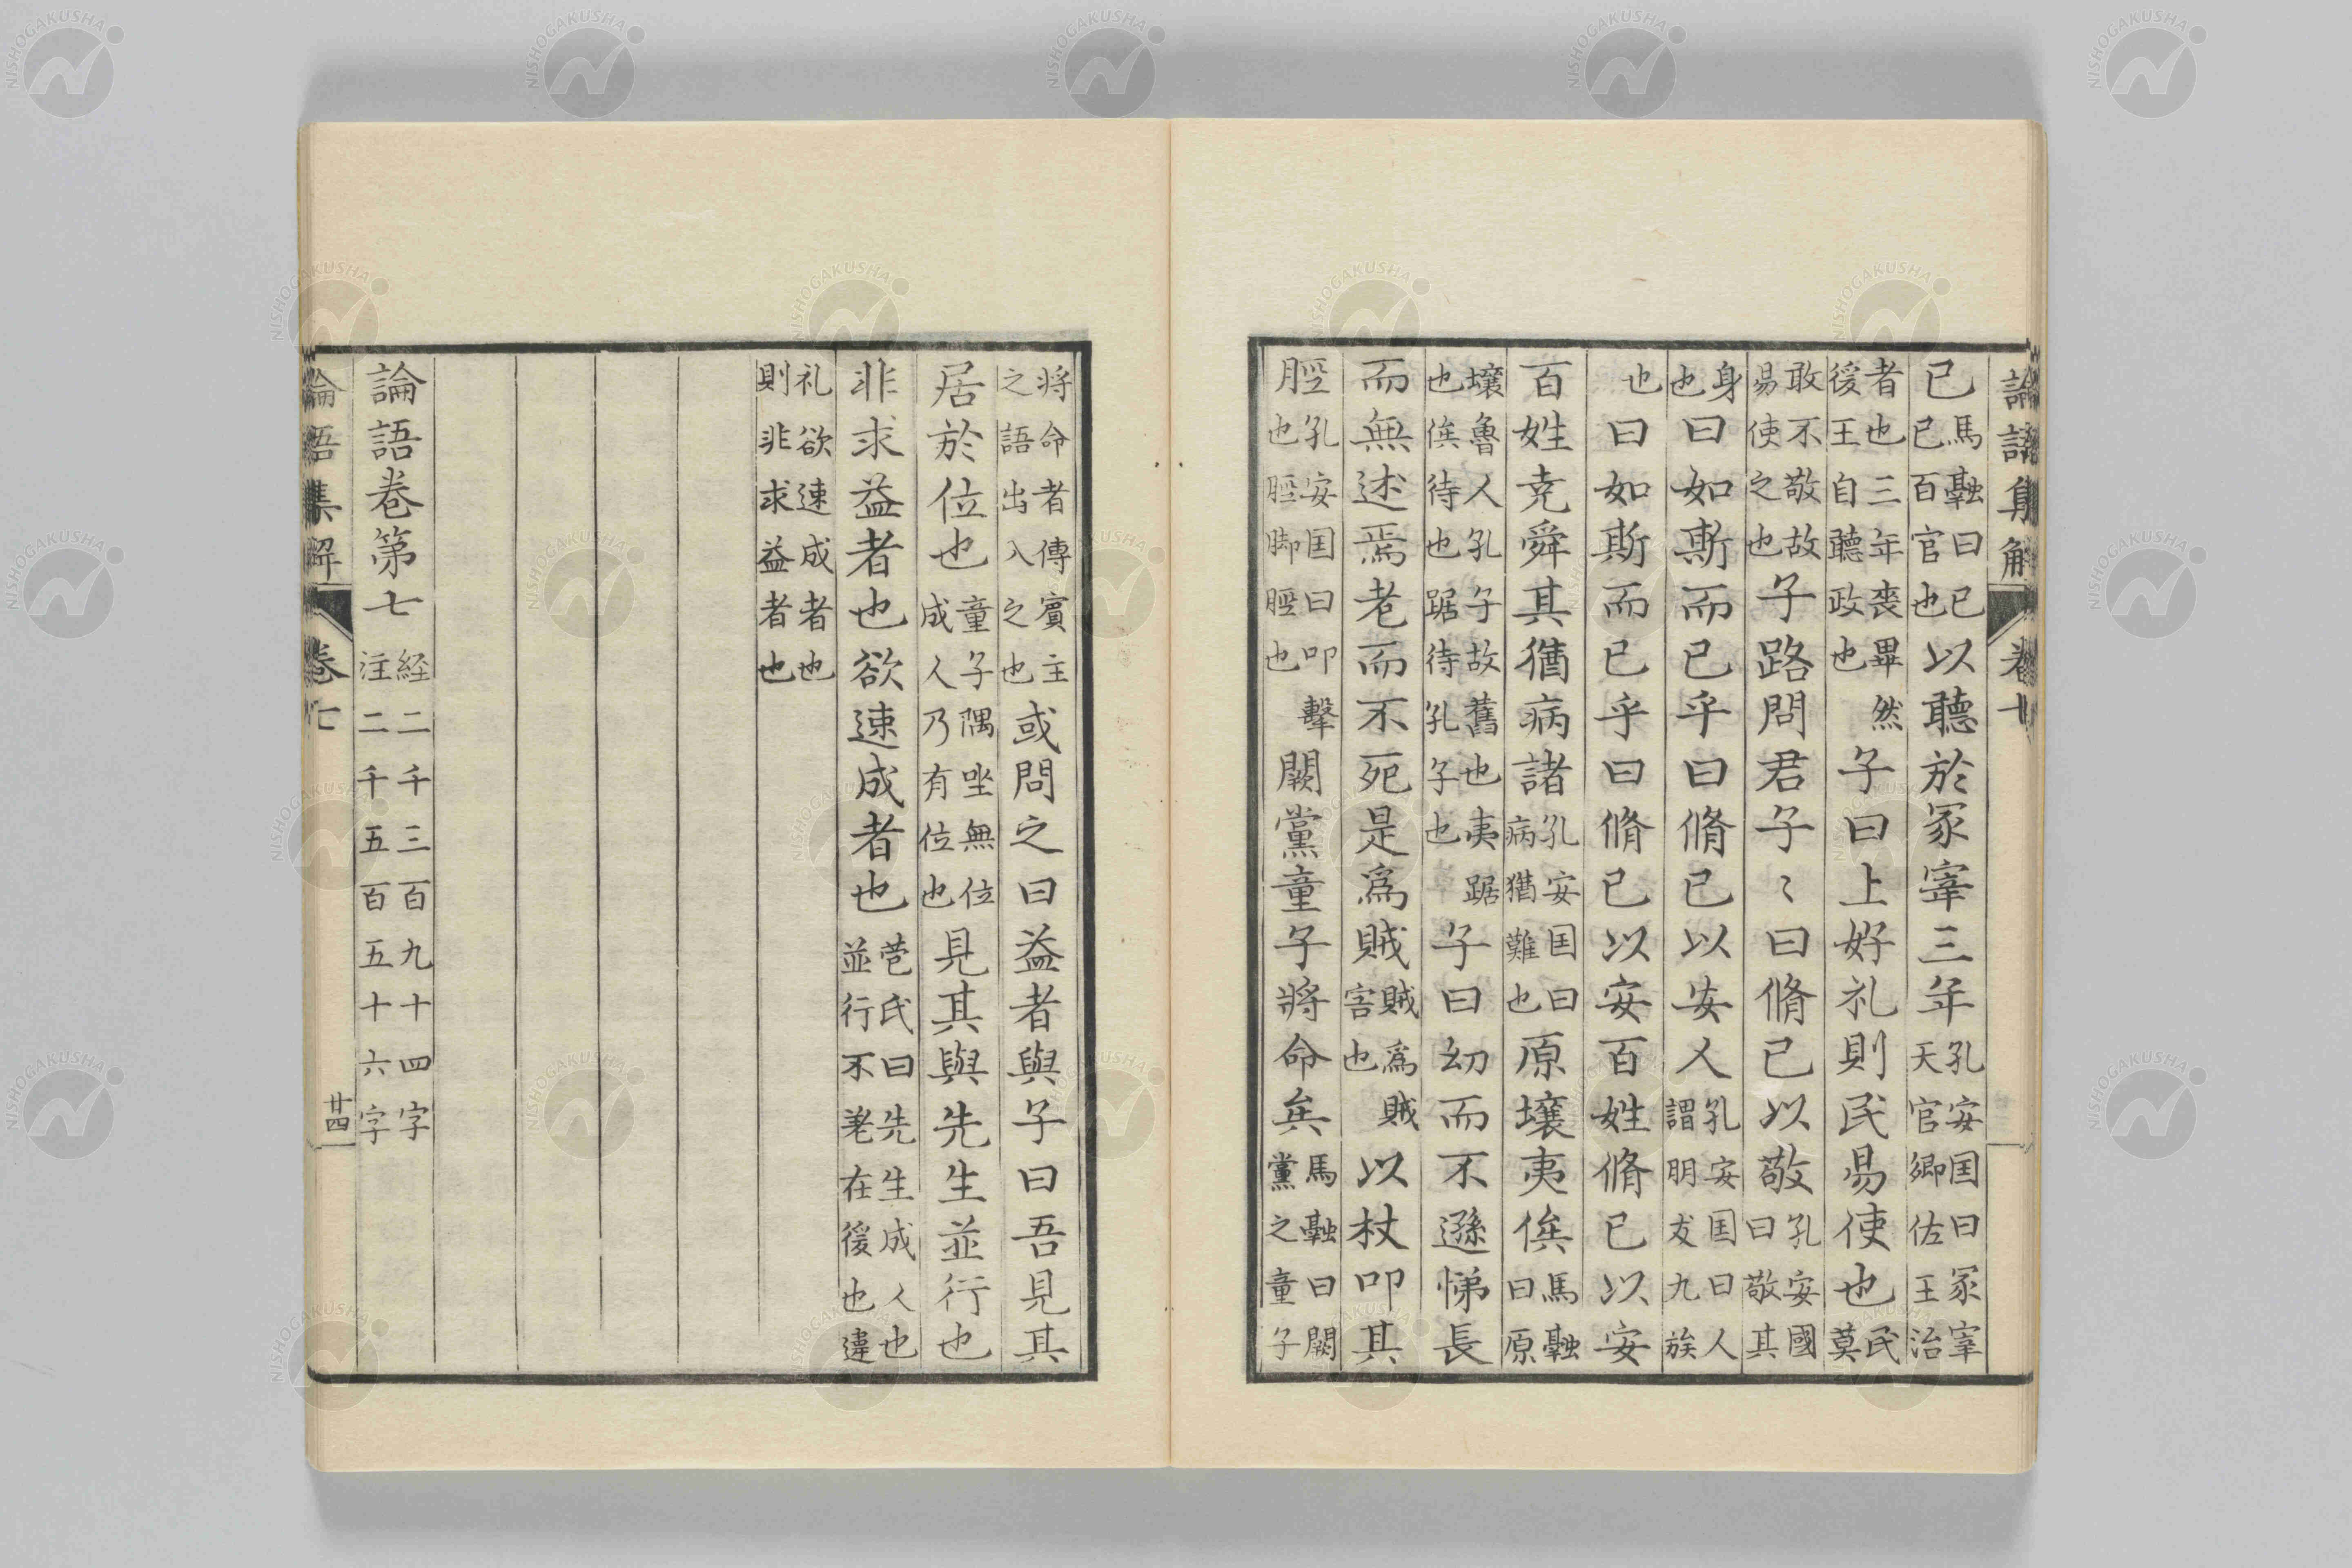 論語集解 卷七
已馬融曰已已百官也以聽於冢宰三年孔安国曰冢宰天官卿佐王治
者也三年喪畢然後王自聽政也子曰上好礼則民易使也民莫
敢不敬故易使之也子路問君子〻曰脩己以敬孔安國曰敬其
身也曰如斯而已乎曰脩己以安人孔安国曰人謂朋友九族
也曰如斯而已乎曰脩己以安百姓脩己以安
百姓尭舜其猶病諸孔安国曰病猶難也原壤夷俟馬融曰原
壤魯人孔子故舊也夷踞也俟待也踞待孔子也子曰幼而不遜悌長
而無述焉老而不死是爲賊賊爲賊害也以杖叩其
脛孔安国曰叩擊也脛脚脛也闕黨童子將命矣馬融曰闕黨之童子
将命者傳賓主之語出入之也或問之曰益者與子曰吾見其
居於位也童子隅坐無位成人乃有位也見其與先生並行也
非求益者也欲速成者也苞氏曰先生成人也並行不差在後也違
礼欲速成者也則非求益者也
論語卷第七経二千三百九十四字注二千五百五十六字
論語集解 卷七 廿四
NISHOGAKUSHA